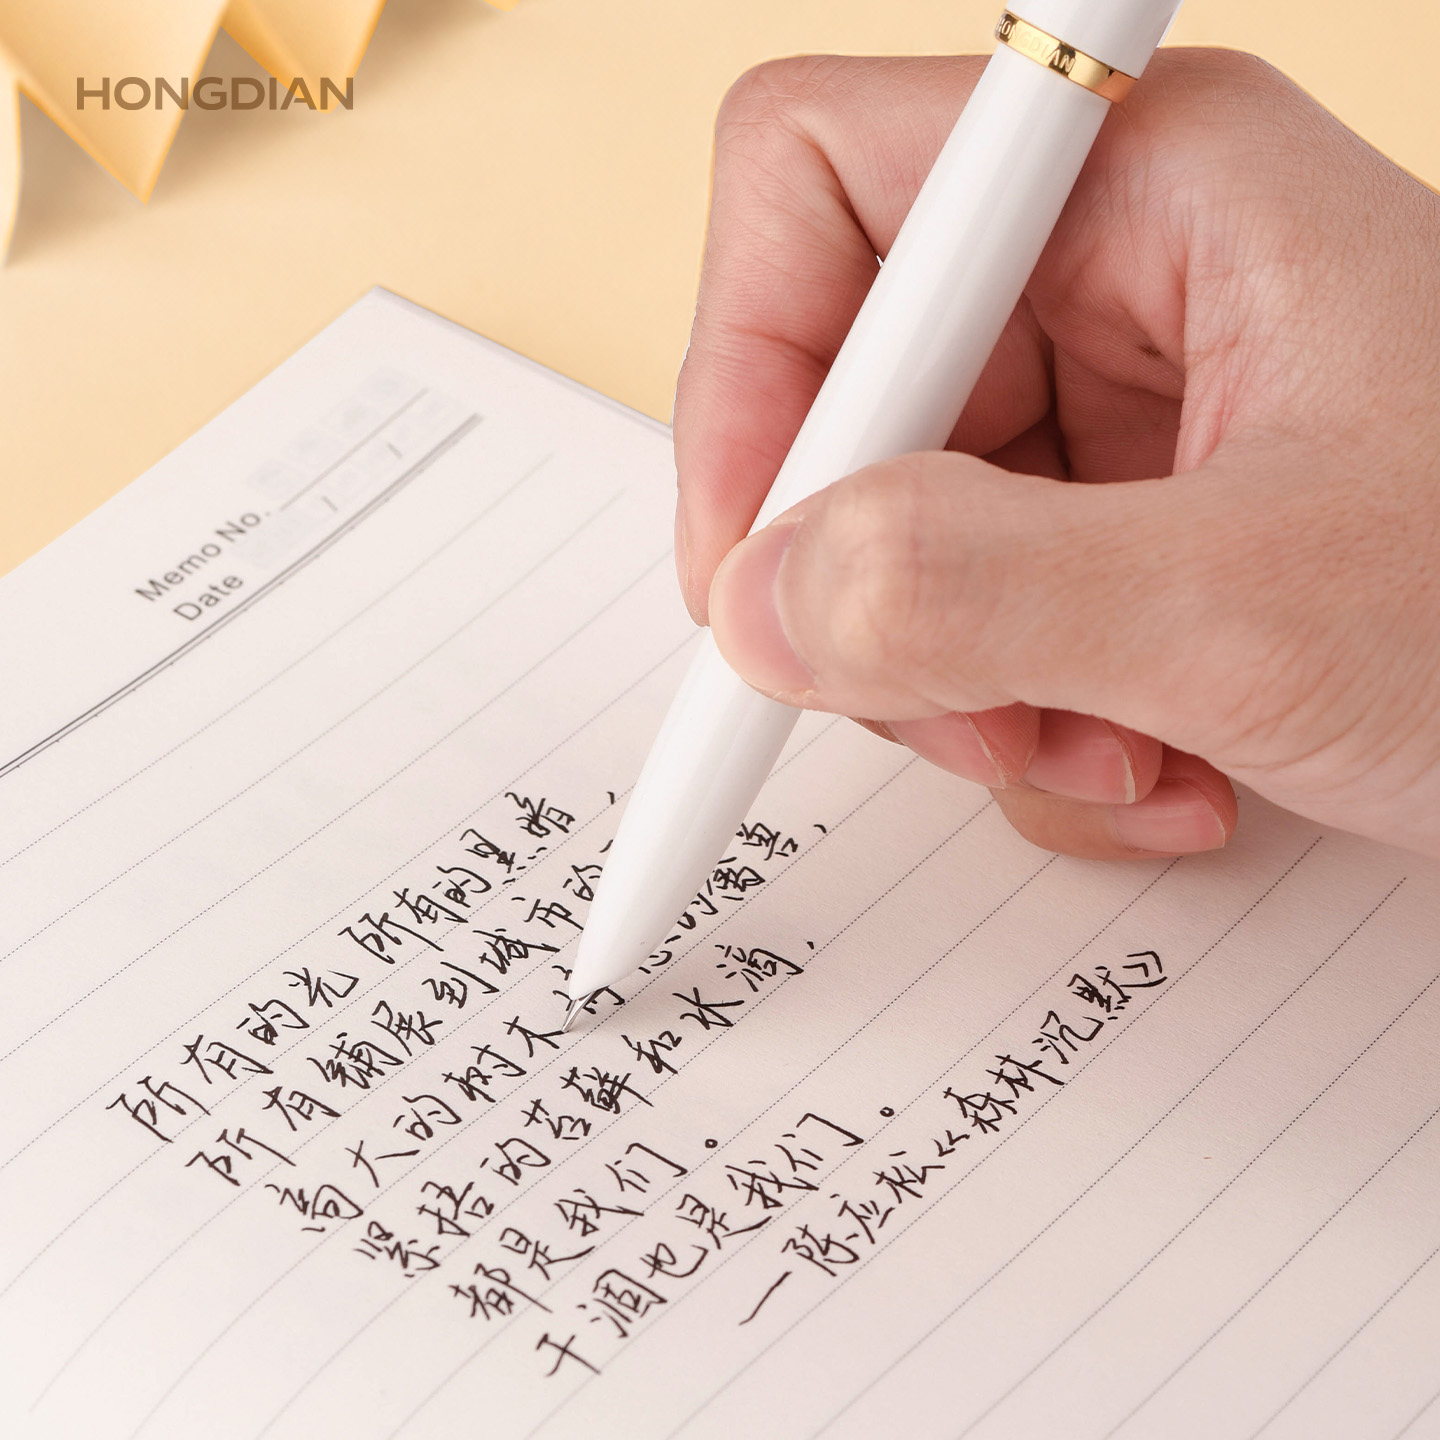 HONGDIAN
HONGDIAN
Memo No.
Date / /
所有的光 所有的黑暗，
所有铺展到城市的
高大的树木 的禽兽，
紧捂的苔藓和水滴，
都是我们。
干涸也是我们。
一陈应松《森林沉默》